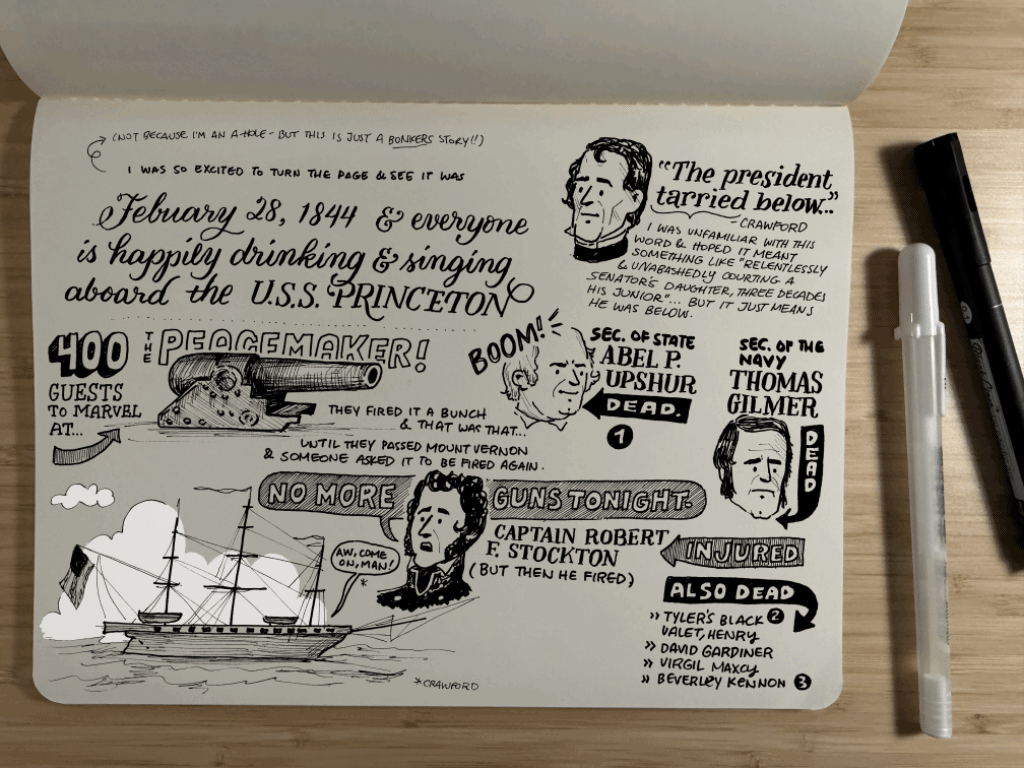 (NOT BECAUSE I'M AN A-HOLE - BUT THIS IS JUST A BONKERS STORY!!)
I WAS SO EXCITED TO TURN THE PAGE & SEE IT WAS
Febuary 28, 1844 & everyone
is happily drinking & singing
aboard the U.S.S. PRINCETON
"The president
tarried below..."
-CRAWFORD
I WAS UNFAMILIAR WITH THIS
WORD & HOPED IT MEANT
SOMETHING LIKE "RELENTLESSLY
& UNABASHEDLY COURTING A
SENATOR'S DAUGHTER, THREE DECADES
HIS JUNIOR"... BUT IT JUST MEANS
HE WAS BELOW.
400
GUESTS
TO MARVEL
AT...
THE PEACEMAKER!
THEY FIRED IT A BUNCH
& THAT WAS THAT...
UNTIL THEY PASSED MOUNT VERNON
& SOMEONE ASKED IT TO BE FIRED AGAIN.
BOOM!
SEC. OF STATE
ABEL P.
UPSHUR
DEAD.
1
SEC. OF THE
NAVY
THOMAS
GILMER
DEAD
NO MORE GUNS TONIGHT.
CAPTAIN ROBERT
F. STOCKTON
(BUT THEN HE FIRED)
INJURED
AW, COME
ON, MAN!
*
ALSO DEAD
» TYLER'S BLACK 2
VALET, HENRY
» DAVID GARDINER
» VIRGIL MAXCY
» BEVERLEY KENNON 3
*CRAWFORD